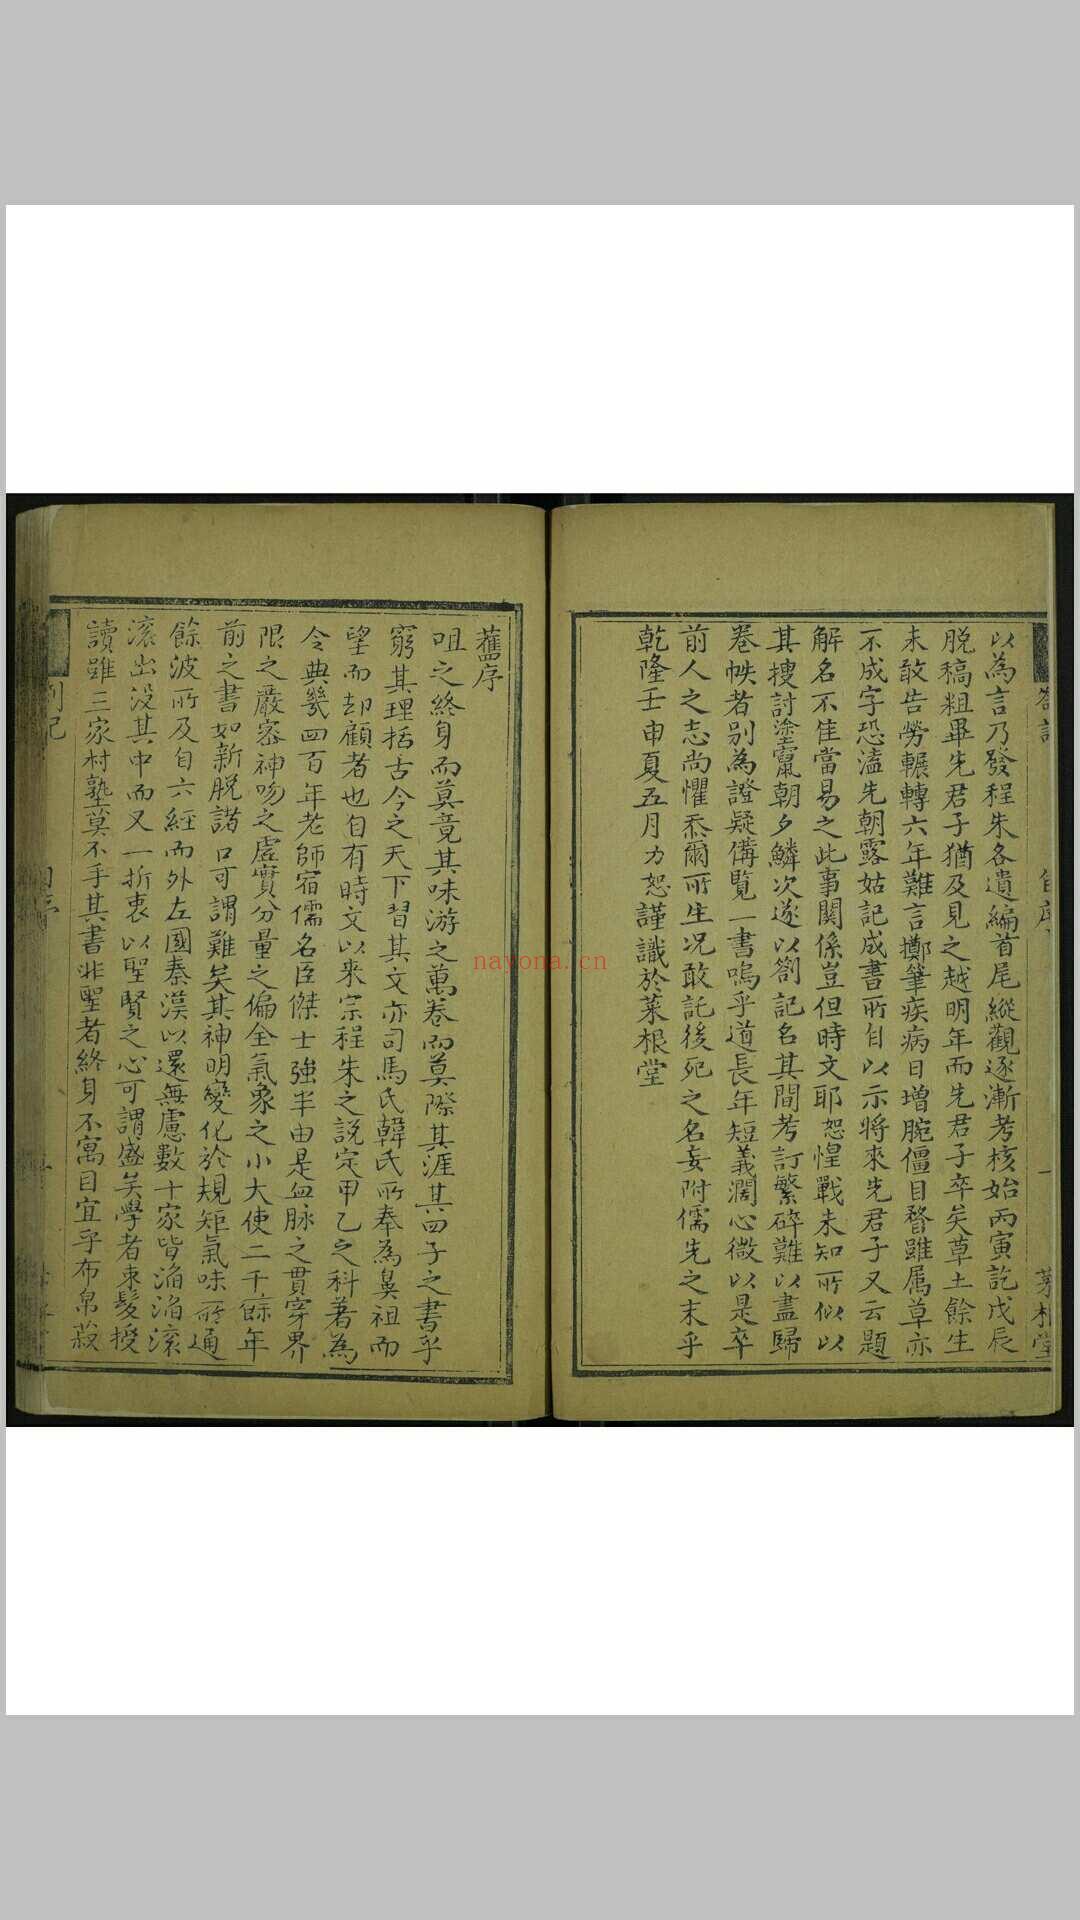 以為言乃發程朱各遺編首尾縱觀逐漸考核始丙寅訖戊辰
脱稿粗畢先君子猶及見之越明年而先君子卒矣草土餘生
未敢告勞輾轉六年難言擲筆疾病日增腕僵目瞀雖属草亦
不成字恐溘先朝露姑記成書所自以示將來先君子又云題
解名不佳當易之此事關係豈但時文耶恕惶戰未知所似以
其搜討塗竄朝夕鱗次遂以劄記名其間考訂繁碎難以盡歸
卷帙者别為證疑備覧一書嗚乎道長年短義濶心微以是卒
前人之志尚懼忝爾所生况敢託後死之名妄附儒先之末乎
乾隆壬申夏五月力恕謹識於菜根堂
舊序
咀之終身而莫竟其味游之萬卷而莫際其涯其四子之書乎
窮其理括古今之天下習其文亦司馬氏韓氏所奉為鼻祖而
望而却顧者也自有時文以来宗程朱之説定甲乙之科著為
令典幾四百年老師宿儒名臣傑士強半由是血脉之貫穿界
限之嚴密神吻之虛實分量之偏全氣象之小大使二千餘年
前之書如新脱諸口可謂難矣其神明變化於規矩氣味所通
餘波所及自六經而外左國秦漢以還無慮數十家皆淪淪滚
滚出没其中而又一折衷以聖賢之心可謂盛矣學者束髮授
讀雖三家村塾莫不手其書非聖者終身不寓目宜乎布帛菽
nayona.cn